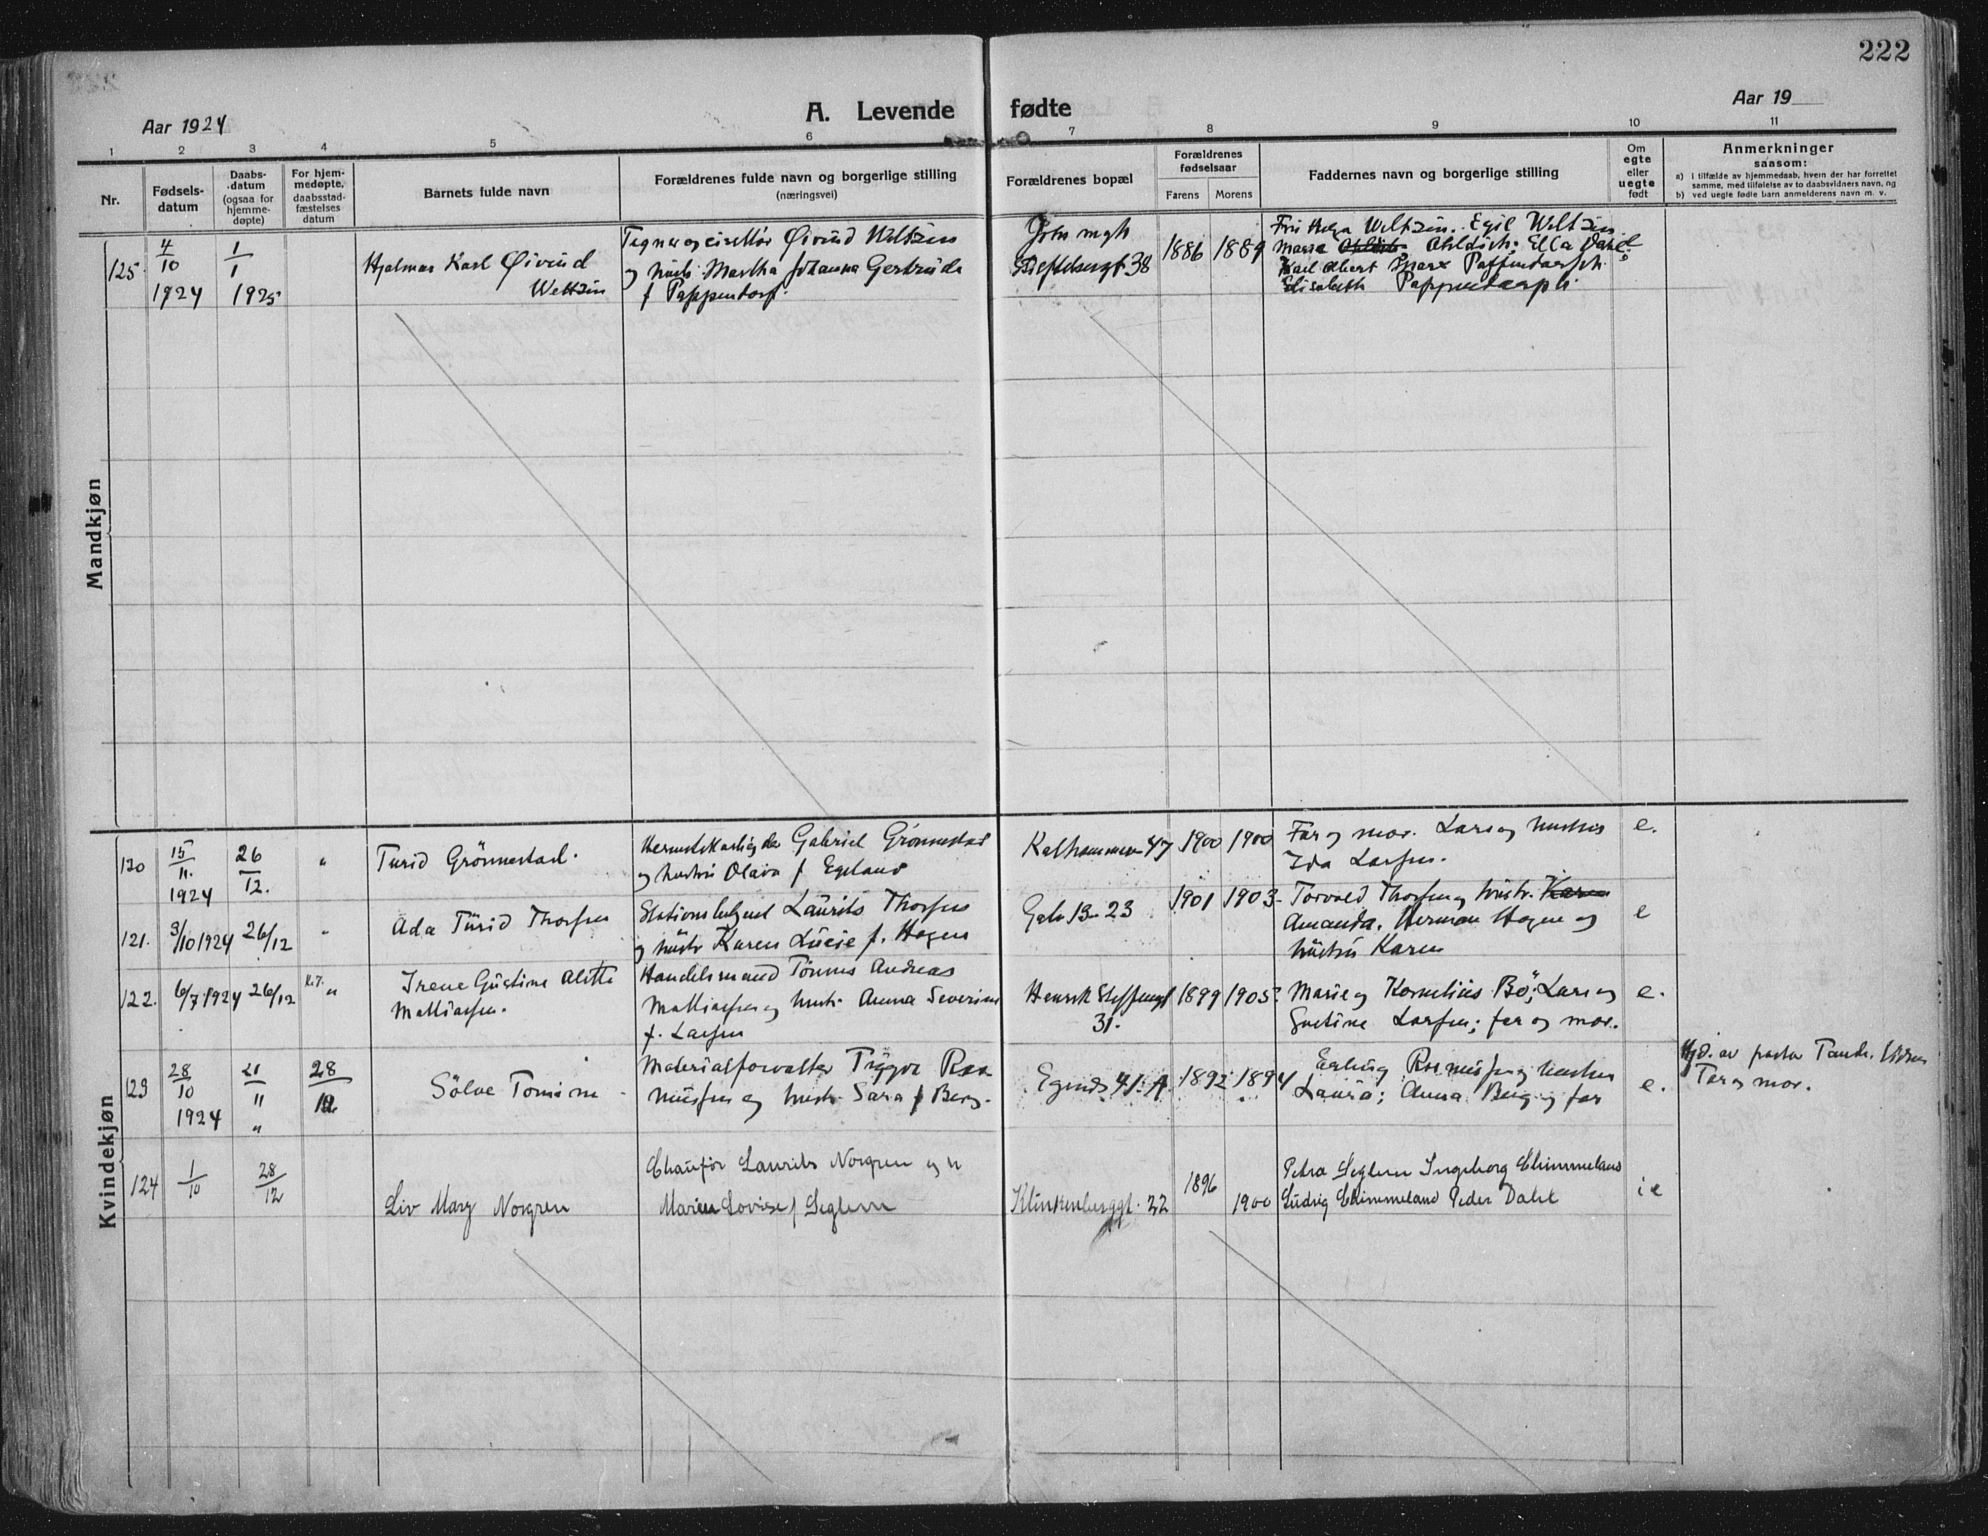 222
Aar 1924
A. Levende fødte
Aar 19
1 2 3 4 5 6 7 8 9 10 11
Nr.
Fødsels-
datum
Daabs-
datum
(ogsaa for
hjemme-
døpte)
For hjem-
medøpte,
daabsstad-
fæstelses
datum
Barnets fulde navn
Forældrenes fulde navn og borgerlige stilling
(næringsvei)
Forældrenes bopæl
Forældrenes
fødselsaar
Farens Morens
Faddernes navn og borgerlige stilling
Om
egte
eller
uegte
født
Anmerkninger
saasom:
a) i tilfælde av hjemmedaab, hvem der har forrettet
samme, med tilføielse av to daabsvidners navn, og
b) ved uegte fødte barn anmelderens navn m. v.
Mandkjøn
125.
4/10
1924
1/1
1925
Hjalmar Karl Øivind
Weltzin
Øivind Weltzin
og Martha Johanna Gertrude
f Pappendorf.
38
1886 1889
Fru Helga Weltzin. Egil Weltzin
Ella Dahl
Karl Albert Marx
Elisabeth
e
Kvindekjøn
120
15/11.
1924
26/12.
"
Turid Grönnestad.
Gabriel Grönnestad
og hustru Olava f Egeland
47
1900 1900
Far og mor. Lars og hustru
Ida Larsen.
e.
121.
3/10 1924
26/12
"
Ada Turid Thorsen
Laurits Thorsen
og hustr Karen Lucie f. Hagen
13-23
1901 1903
Torvald Thorsen og hustr. Karen
Amanda. Herman Hagen og
hustru Karen
e
122.
6/7 1924
26/12
"
Irene Gustine Alette
Mathiassen.
Handelsmand Tönnes Andreas
Mathiassen og hustr. Anna Severine
f. Larsen
Henrik Steffensgt
31.
1899 1905
Marie og Kornelius Bö; Lars og
Gustine Larsen; far og mor.
e.
123
28/10
1924
21/11
"
28/12
Sölve Tomine
Materialforvalter Trygve Ras
mussen og hustr. Sara f Berg.
41. A.
1892 1894
Erling Rasmussen og hustru
Laura; Anna Berg og far
e.
Hjd. av pastor
Far og mor.
124
1/10
28/12
Liv Mary Norgren
Chaufför Laurits Norgren og h
Lovise f Seglem
Klinkenberggt. 22
1896
1900
Petra Seglem Ingeborg Ehimmeland
Ludvig Ehimmeland Peder Dahl